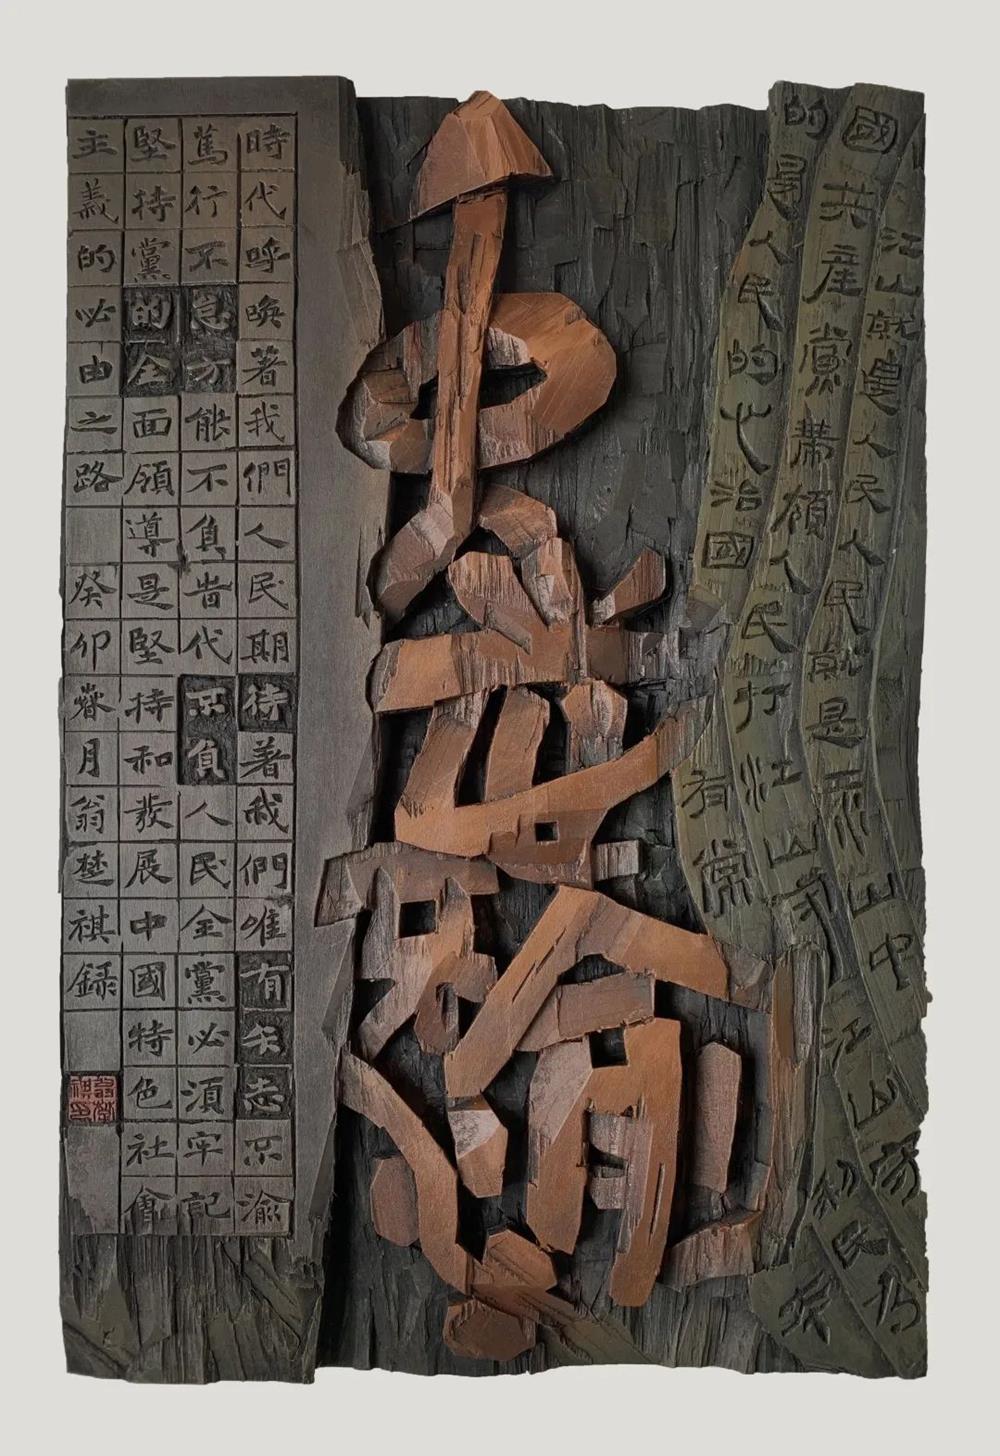 江山就是人民人民就是江山中
國共產黨帶領人民打江山守江山守
的是人民的心治國有常利民为本
時代呼喚著我們人民期待著我們唯有矢志不渝
篤行不怠方能不負旹代不負人民全黨必須牢記
堅持黨的全面領導是堅持和發展中國特色社會
主義的必由之路 癸卯春月翁楚祺錄
翁楚祺印